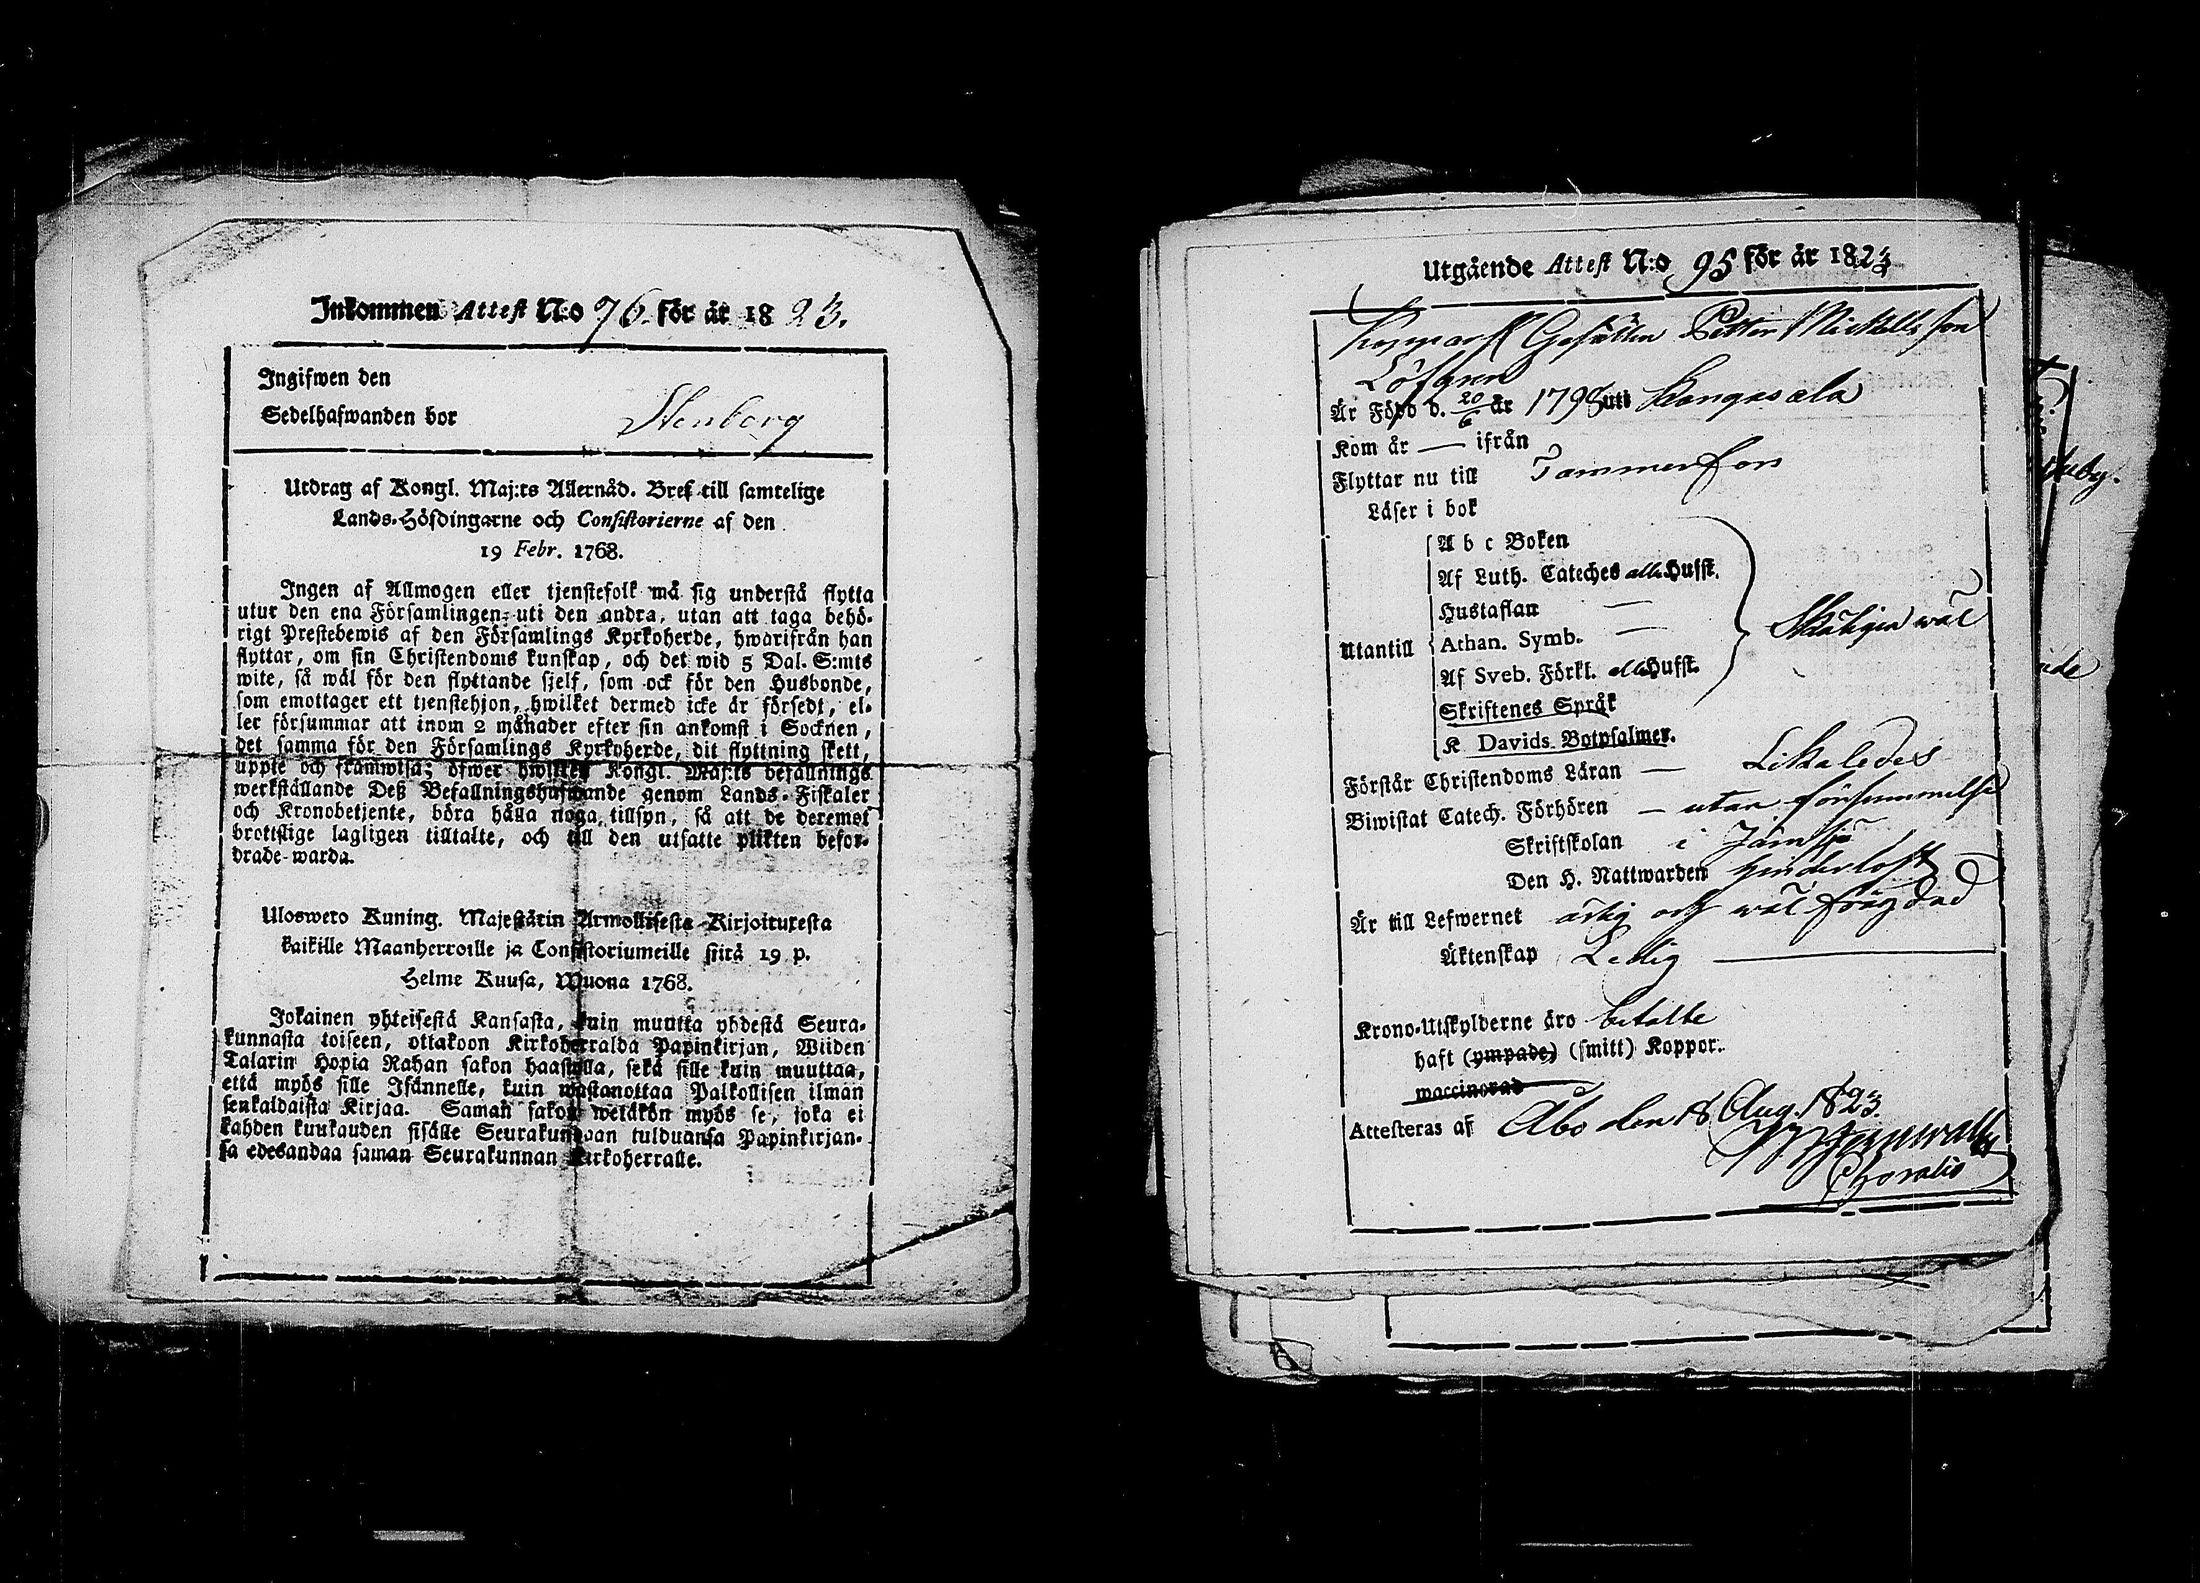 Inkommen Attest N:o 76. för år 1823.
Ingifwen den
Sedelhafwanden bor Stenberg
Utdrag af Kongl. Maj:ts Allernåd. Bref till samtelige
Lands-Höfdingarne och Consistorierne af den
19 Febr. 1768.
Ingen af Allmogen eller tjenstefolk må sig understå flytta
utur den ena Församlingen uti den andra, utan att taga behö-
rigt Prestebewis af den Församlings Kyrkoherde, hwarifrån han
flyttar, om sin Christendoms kunskap, och det wid 5 Dal. S:mts
wite, så wäl för den flyttande sjelf, som ock för den Husbonde,
som emottager ett tjenstehjon, hwilket dermed icke är försedt, el-
ler försummar att inom 2 månader efter sin ankomst i Socknen,
det samma för den Församlings Kyrkoherde, dit flyttning skett,
uppte och framwisa; öfwer hwilken Kongl. Maj:ts befallnings
werkställande Deß Befallningshafwande genom Lands-Fiskaler
och Kronobetjente, böra hålla noga tillsyn, så att de deremot
brottslige lagligen tilltalte, och till den utsatte plikten befor-
drade warda.
Uloswero Kuning. Majestätin Armollisesta Kirjoituxesta
kaikille Maanherroille ja Consistoriumeille siitä 19 p.
Helme Kuusa, Wuona 1768.
Jokainen yhteisestä Kansasta, kuin muutta yhdestä Seura-
kunnasta toiseen, ottakoon Kirkoherralda Papinkirjan, Wiiden
Talarin Hopia Rahan sakon haastolla, sekä sille kuin muuttaa,
että myös sille Isännelle, kuin wastanottaa Palkollisen ilman
senkaldaista Kirjaa. Saman sakon wetäkön myös se, joka ei
kahden kuukauden sisälle Seurakundaan tulduansa Papinkirjan-
sa edesandaa saman Seurakunnan Kirkoherralle.
Utgående Attest N:o 95 för år 1823
Gesällen Petter Mickellsson
Löfgren
Är Född d. 20/6 år 1798 uti Kangasala
Kom år — ifrån
Flyttar nu till Tammerfors
Läser i bok
A b c Boken
Af Luth. Cateches alla Husst.
Hustaflan —
Utantill Athan. Symb. — Skäligen wäl
Af Sveb. Förkl. alla Husst.
Skriftenes Språk
K Davids Botpsalmer.
Förstår Christendoms Läran — Likaledes
Biwistat Catech. Förhören — utan försummelse
Skriftskolan i
Den H. Nattwarden
Är till Lefwernet ärlig och wäl frägdad
Äktenskap Ledig
Krono-Utskylderne äro betalte
haft (ympade) (smitt) Koppor.
waccinerad
Attesteras af Åbo den 18 Aug. 1823.